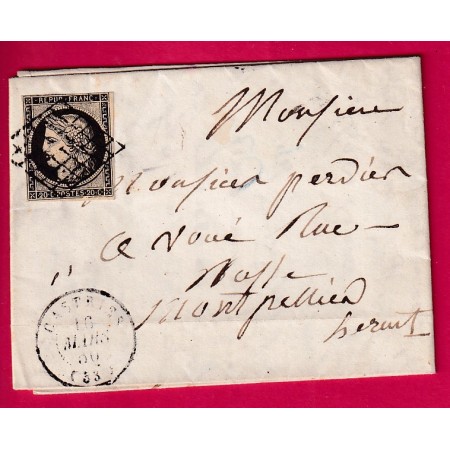 REPUB. FRANC.
20 c. POSTES 20 c.
Monsieur
Monsieur perdier
a voué Rue
basse
Montpellier
herault
CASTRIES
16
MARS
50
(33)